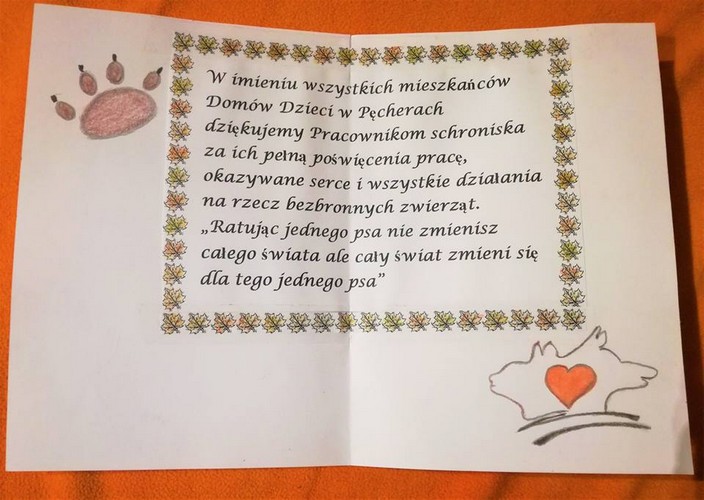 W imieniu wszystkich mieszkańców
Domów Dzieci w Pęcherach
dziękujemy Pracownikom schroniska
za ich pełną poświęcenia pracę,
okazywane serce i wszystkie działania
na rzecz bezbronnych zwierząt.
„Ratując jednego psa nie zmienisz
całego świata ale cały świat zmieni się
dla tego jednego psa”